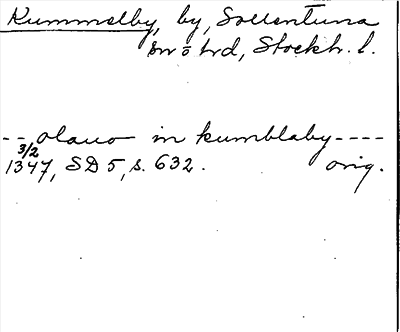 Kummelby, by, Sollentuna
sn o hd, Stockh. l.
-- olauo in kumblaby ----
3/2
1347, SD 5, s. 632. orig.